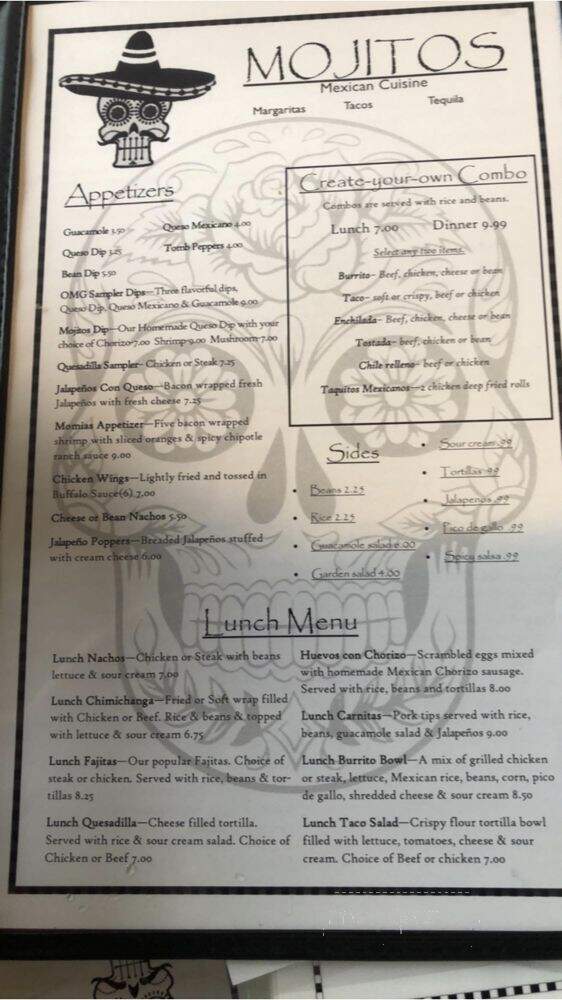 MOJITOS
Mexican Cuisine
Margaritas Tacos Tequila
Appetizers
Guacamole 3.50 Queso Mexicano 4.00
Queso Dip 3.25 Tomb Peppers 4.00
Bean Dip 5.50
OMG Sampler Dips—Three flavorful dips,
Queso Dip, Queso Mexicano & Guacamole 9.00
Mojitos Dip—Our Homemade Queso Dip with your
choice of Chorizo-7.00 Shrimp-9.00 Mushroom-7.00
Quesadilla Sampler- Chicken or Steak 7.25
Jalapeños Con Queso—Bacon wrapped fresh
Jalapeños with fresh cheese 7.25
Momias Appetizer—Five bacon wrapped
shrimp with sliced oranges & spicy chipotle
ranch sauce 9.00
Chicken Wings—Lightly fried and tossed in
Buffalo Sauce(6) 7.00
Cheese or Bean Nachos 5.50
Jalapeño Poppers—Breaded Jalapeños stuffed
with cream cheese 6.00
Create-your-own Combo
Combos are served with rice and beans.
Lunch 7.00 Dinner 9.99
Select any two items.
Burrito- Beef, chicken, cheese or bean
Taco- soft or crispy, beef or chicken
Enchilada- Beef, chicken, cheese or bean
Tostada- beef, chicken or bean
Chile relleno- beef or chicken
Taquitos Mexicanos—2 chicken deep fried rolls
Sides
• Beans 2.25
• Rice 2.25
• Guacamole salad 6.00
• Garden salad 4.00
• Sour cream .99
• Tortillas .99
• Jalapenos .99
• Pico de gallo .99
• Spicy salsa .99
Lunch Menu
Lunch Nachos—Chicken or Steak with beans
lettuce & sour cream 7.00
Lunch Chimichanga—Fried or Soft wrap filled
with Chicken or Beef. Rice & beans & topped
with lettuce & sour cream 6.75
Lunch Fajitas—Our popular Fajitas. Choice of
steak or chicken. Served with rice, beans & tor-
tillas 8.25
Lunch Quesadilla—Cheese filled tortilla.
Served with rice & sour cream salad. Choice of
Chicken or Beef 7.00
Huevos con Chorizo—Scrambled eggs mixed
with homemade Mexican Chorizo sausage.
Served with rice, beans and tortillas 8.00
Lunch Carnitas—Pork tips served with rice,
beans, guacamole salad & Jalapeños 9.00
Lunch Burrito Bowl—A mix of grilled chicken
or steak, lettuce, Mexican rice, beans, corn, pico
de gallo, shredded cheese & sour cream 8.50
Lunch Taco Salad—Crispy flour tortilla bowl
filled with lettuce, tomatoes, cheese & sour
cream. Choice of Beef or chicken 7.00